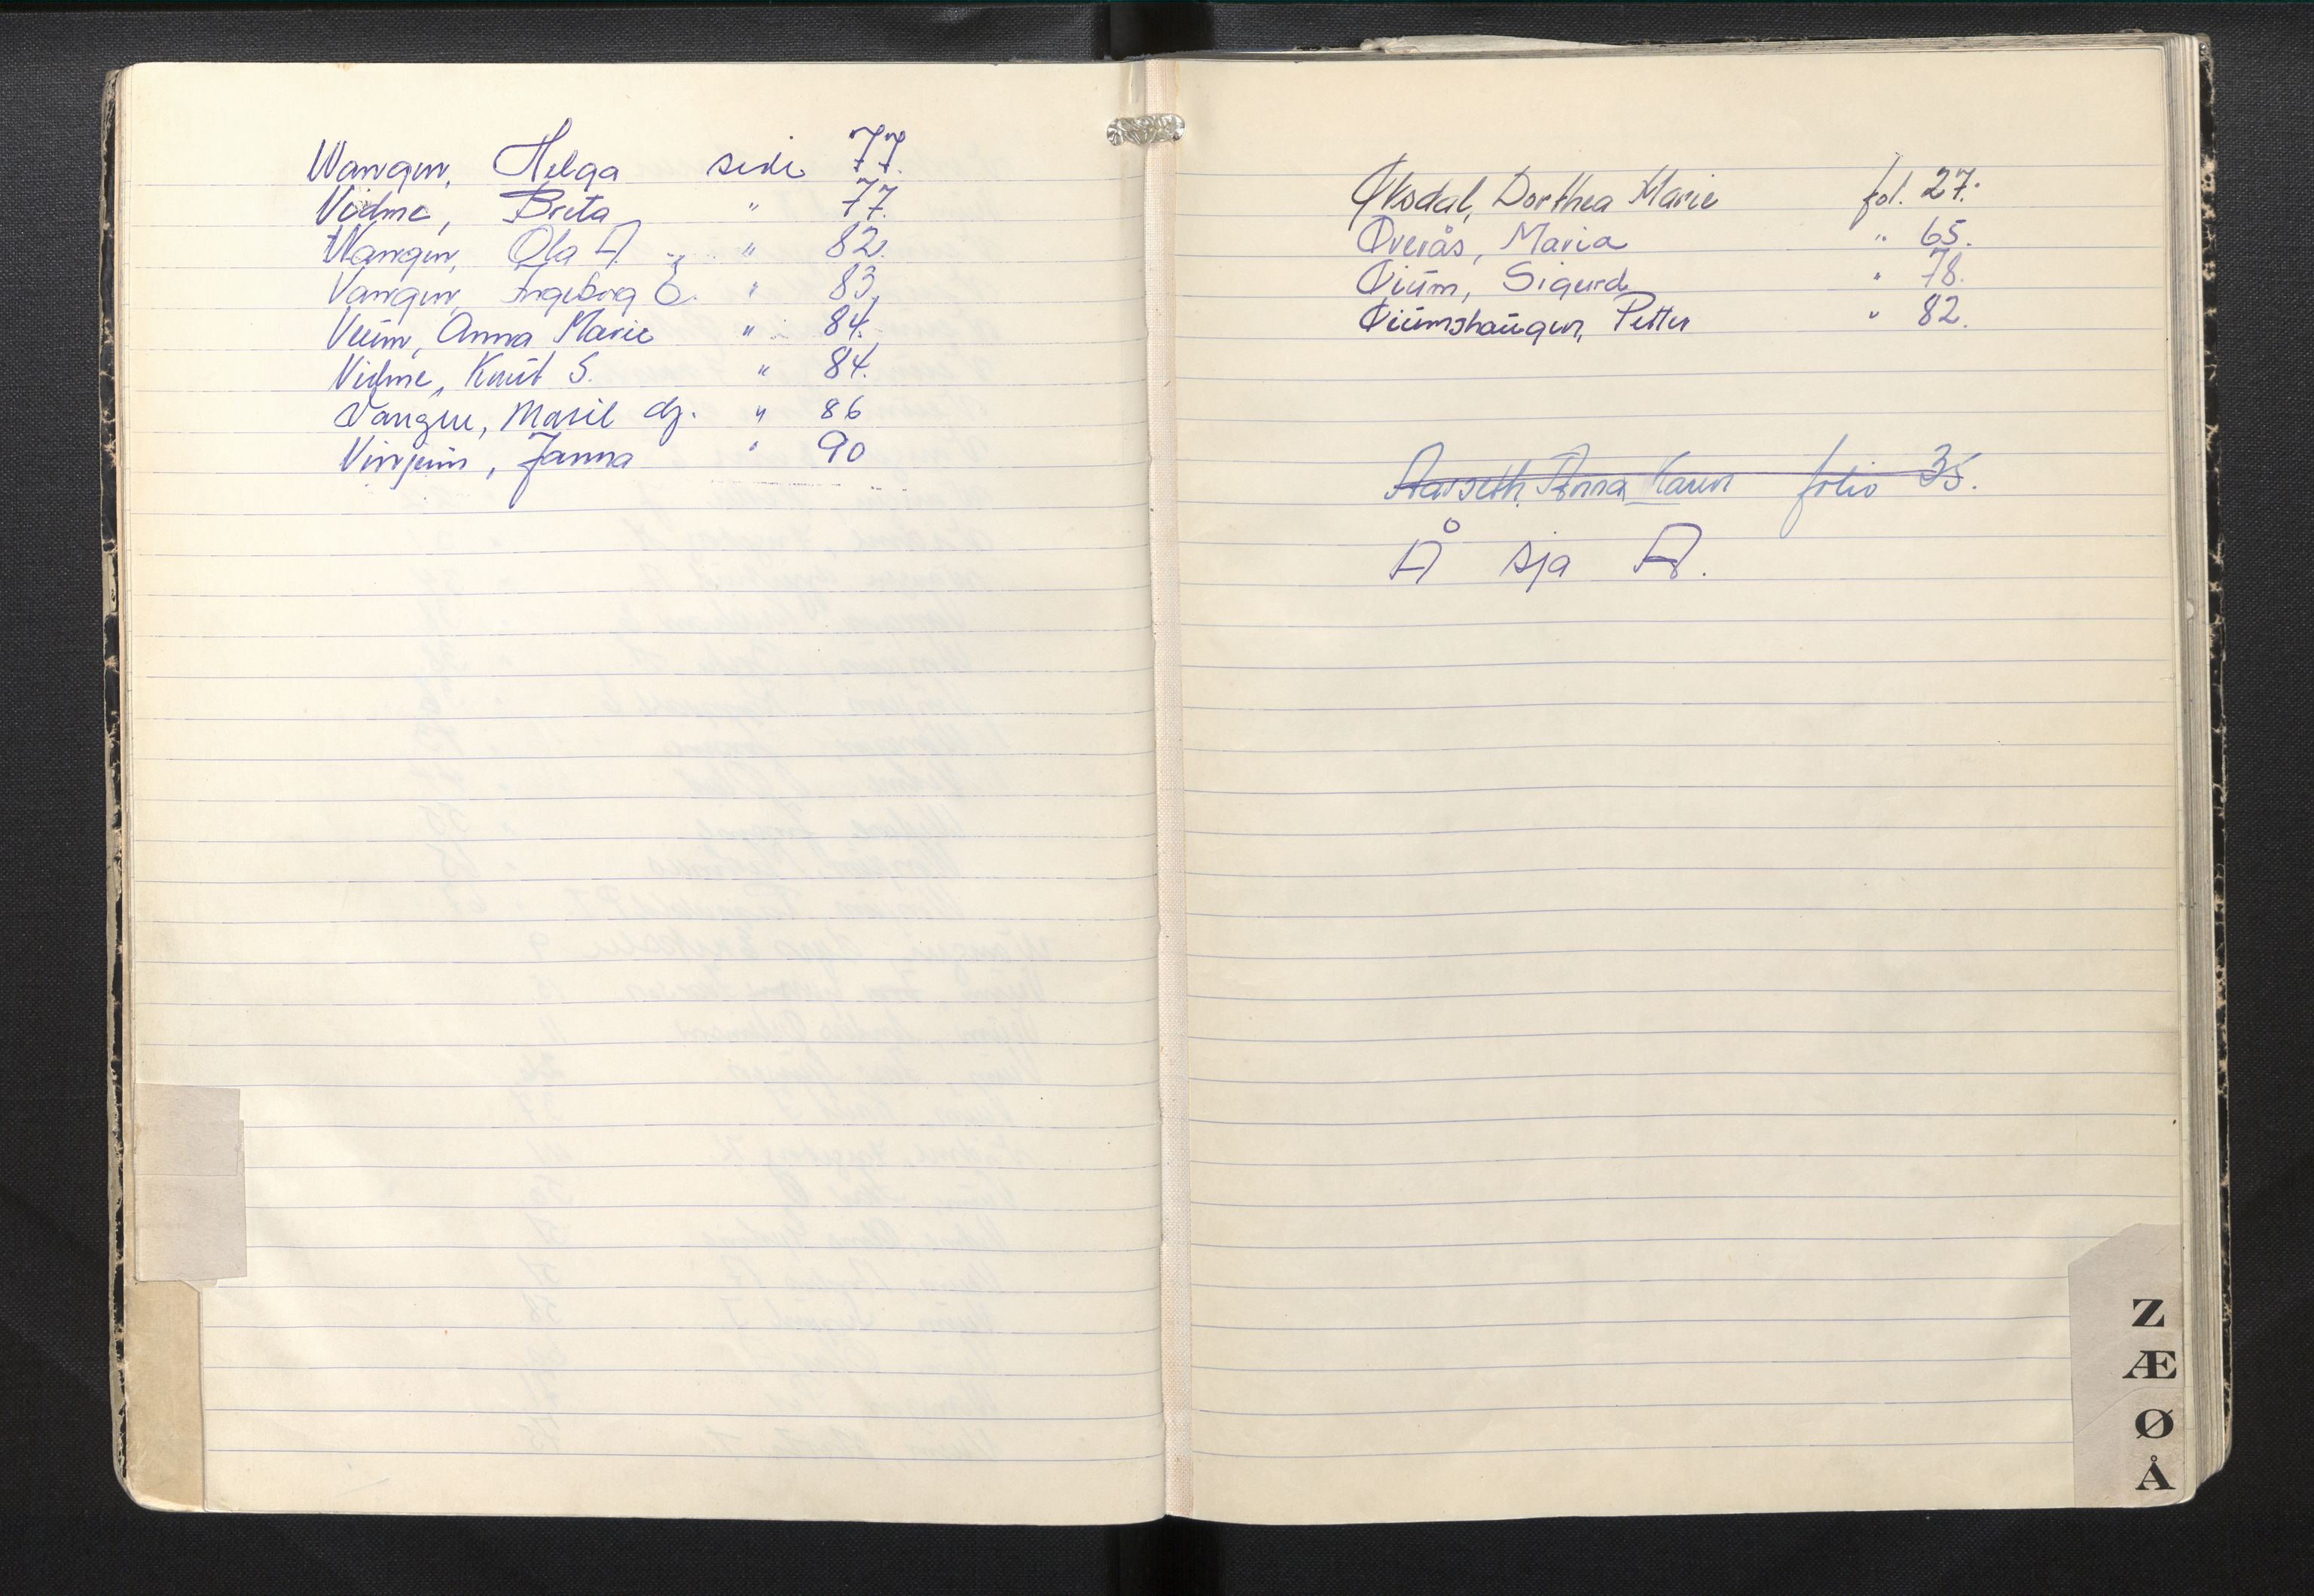 Wangen, Helga side 77.
Vidme, Brita " 77.
Wangen, Ola A. " 82.
Vangen, Ingeborg E. " 83.
Veum, Anna Marie " 84.
Vidme, Knut S. " 84.
Vangen, Marit dy. " 86
Vinjum, Janna " 90
Øksdal, Dorthea Marie fol. 27.
Øverås, Maria " 65.
Øium, Sigurd " 78.
Øiumshaugen, Petter " 82.
Aarseth, Anna Karen folio 35.
Å sja A.
Z
Æ
Ø
Å